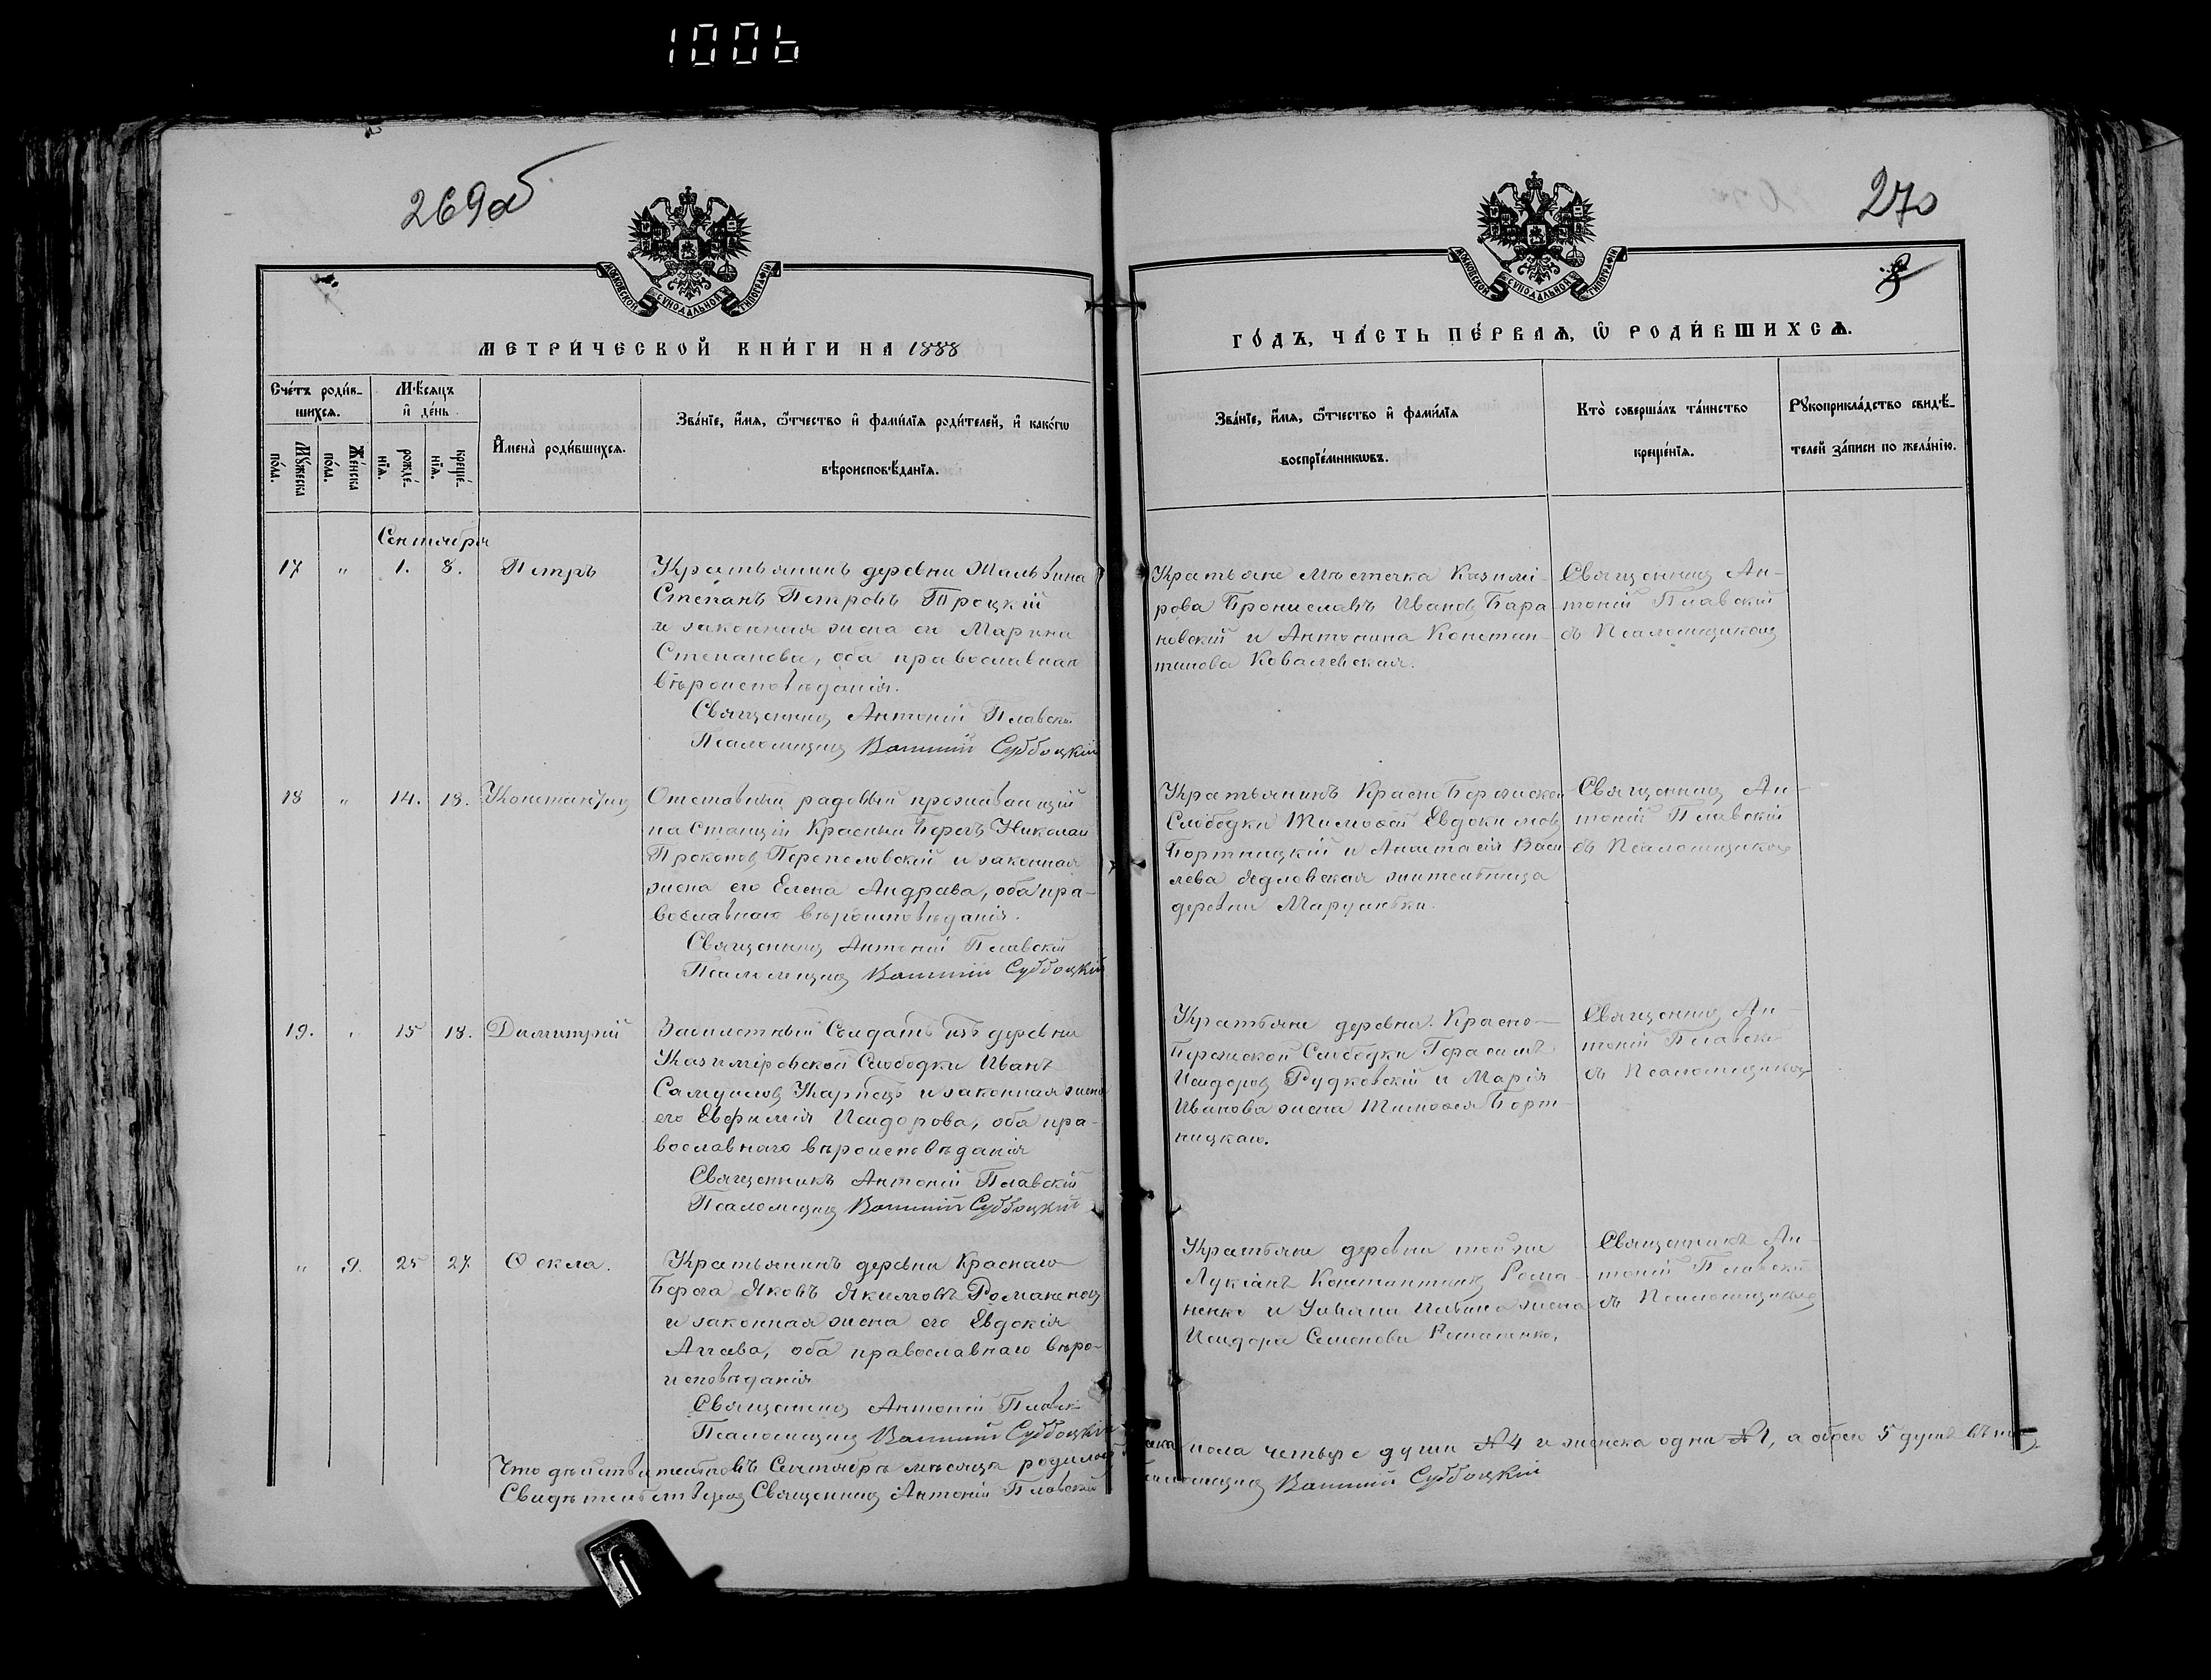 1006
269об
270
МОСКОВСКОЙ СѴНОДАЛЬНОЙ ТИПОГРАФІИ
МОСКОВСКОЙ СѴНОДАЛЬНОЙ ТИПОГРАФІИ
МЕТРИ́ЧЕСКОЙ КНИ́ГИ НА 1888
ГО́ДЪ, ЧА́СТЬ ПЕ́РВАѦ, Ѡ РОДИ́ВШИХСѦ.
Сче́тъ роди́в-
шихсѧ.
Мꙋ́жеска
по́ла.
Же́нска
по́ла.
Мѣ́сѧцъ
и҆ де́нь
рожде́-
нїѧ.
креще́-
нїѧ.
И҆мена̀ роди́вшихсѧ.
Зва́нїе, и҆́мѧ, ѻ҆́тчество и҆ фами́лїѧ роди́телей, и҆ како́гѡ
вѣроисповѣ́данїѧ.
Зва́нїе, и҆́мѧ, ѻ҆́тчество и҆ фами́лїѧ
воспрїе́мникѡвъ.
Кто̀ соверша́лъ та́инство
креще́нїѧ.
Рꙋкоприкла́дство свидѣ́-
телей за́писи по жела́нїю.
Сентября
17 " 1. 8. Петръ
Крестьянинъ деревни
Степанъ Петровъ Троцкій
и законная жена его Марина
Степанова, оба православнаго
вѣроисповѣданія.
Священникъ Антоній Плавскій
Псаломщикъ Суббоцкій
Крестьяне мѣстечка Казимі-
рова Брониславъ Ивановъ Бара-
новскій и Антонина Констан-
тинова Ковалевская.
Священникъ Ан-
тоній Плавскій
съ Псаломщикомъ
18 " 14. 18. Константинъ
Отставный рядовый проживающій
на Станціи Красный Берегъ Николай
Прокоповъ Перепеловскій и законная
жена его Елена Андреева, оба пра-
вославнаго вѣроисповѣданія.
Священникъ Антоній Плавскій
Псаломщикъ Суббоцкій
Крестьянинъ Красно Бережской
Слободки Тимофей Евдокимовъ
Бортницкій и Анастасія Васи-
лева жительница
деревни
Священникъ Ан-
тоній Плавскій
съ Псаломщикомъ
19. " 15 18. Димитрій
Забилетный Солдатъ изъ деревни
Казиміровской Слободки Иванъ
Самуиловъ Карпецъ и законная жена
его Евфимія Исидорова, оба пра-
вославнаго вѣроисповѣданія
Священникъ Антоній Плавскій
Псаломщикъ Суббоцкій
Крестьяне деревни Красно-
Бережской Слободки Герасимъ
Исидоровъ Рудковскій и Марія
Иванова жена Тимофея Борт-
ницкаго.
Священникъ Ан-
тоній Плавскій
съ Псаломщикомъ
" 9. 25 27. Ѳекла.
Крестьянинъ деревни Краснаго
Берега Яковъ Якимовъ Романенко
и законная жена его Евдокія
оба православнаго вѣро-
исповѣданія
Священникъ Антоній Плавск
Псаломщикъ Суббоцкій
Крестьяне деревни той же
Лукіанъ Константиновъ Рома-
ненко и Уліяна Ильина жена
Исидора Семенова Романенко.
Священникъ Ан-
тоній Плавскій
съ Псаломщикомъ
Что дѣйствительно въ Сентябрѣ мѣсяцѣ родилось пола четыре души №4 и женска одна №1, а обоего 5 душъ въ томъ
Свидѣтельствуемъ Священникъ Антоній Плавскій Псаломщикъ Суббоцкій